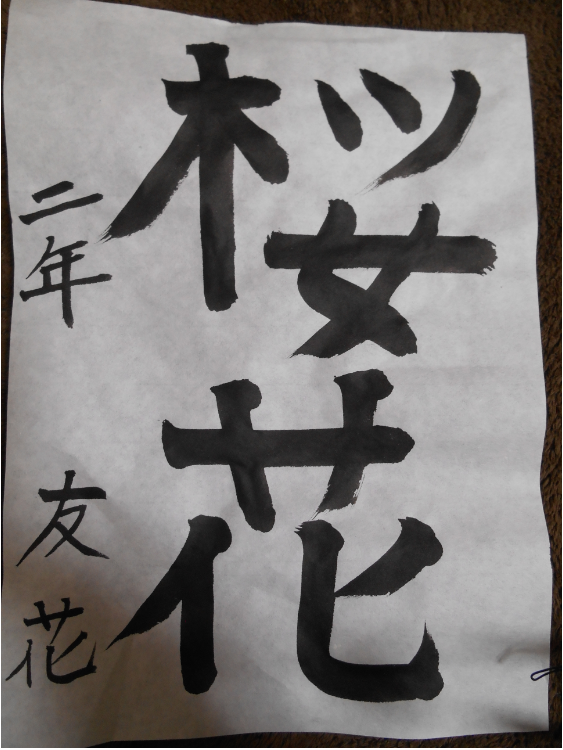 桜花
二年 友花